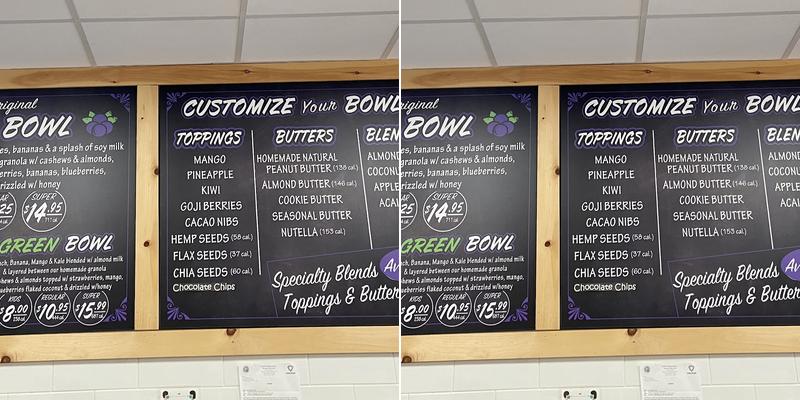 riginal
BOWL
es, bananas & a splash of soy milk
granola w/ cashews & almonds,
erries, bananas, blueberries,
rizzled w/ honey
AR
SUPER
25
$14.95
GREEN BOWL
ch, Banana, Mango & Kale blended w/ almond milk
& layered between our homemade granola
ashews & almonds topped w/ strawberries, mango,
ueberries flaked coconut & drizzled w/honey
KIDS
REGULAR
SUPER
$8.00
$10.95
$15.99
CUSTOMIZE Your BOWL
TOPPINGS
MANGO
PINEAPPLE
KIWI
GOJI BERRIES
CACAO NIBS
HEMP SEEDS (58 cal.)
FLAX SEEDS (37 cal.)
CHIA SEEDS (60 cal.)
Chocolate Chips
BUTTERS
HOMEMADE NATURAL
PEANUT BUTTER (138 cal.)
ALMOND BUTTER (146 cal.)
COOKIE BUTTER
SEASONAL BUTTER
NUTELLA (153 cal.)
BLEN
Specialty Blends Av
Toppings & Butter
riginal
BOWL
es, bananas & a splash of soy milk
granola w/ cashews & almonds,
erries, bananas, blueberries,
rizzled w/ honey
AR
SUPER
25
$14.95
GREEN BOWL
ch, Banana, Mango & Kale blended w/ almond milk
& layered between our homemade granola
ashews & almonds topped w/ strawberries, mango,
ueberries flaked coconut & drizzled w/honey
KIDS
REGULAR
SUPER
$8.00
$10.95
$15.99
CUSTOMIZE Your BOWL
TOPPINGS
MANGO
PINEAPPLE
KIWI
GOJI BERRIES
CACAO NIBS
HEMP SEEDS (58 cal.)
FLAX SEEDS (37 cal.)
CHIA SEEDS (60 cal.)
Chocolate Chips
BUTTERS
HOMEMADE NATURAL
PEANUT BUTTER (138 cal.)
ALMOND BUTTER (146 cal.)
COOKIE BUTTER
SEASONAL BUTTER
NUTELLA (153 cal.)
BLEN
ALMON
COCONU
APPLE
ACAI
Specialty Blends Av
Toppings & Butter